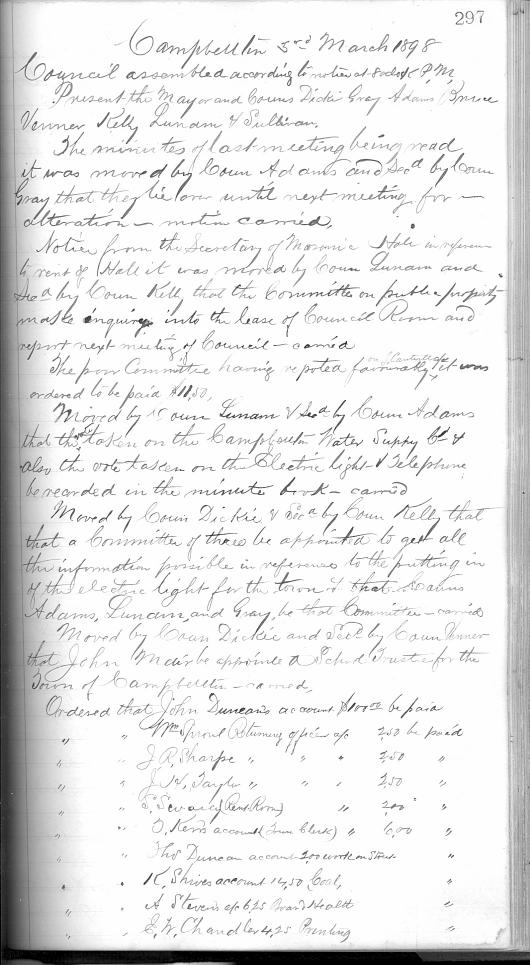 297
Campbellton 3rd March 1898
Council assembled according to notice at 8 oclock P.M.
Present the Mayor and Couns Dickie Gray Adams Bruce
Venner Kelly Lunam & Sullivan.
The minutes of last meeting being read
it was moved by Coun Adams and Secd by Coun
Gray that they lie over until next meeting for
alteration – motion carried,
Notice from the Secretary of Masonic Hall in reference
to rent of Hall it was moved by Coun Lunam and
Secd by Coun Kelly that the Committee on public property
make inquiry into the lease of Council Room and
report next meeting of Council – carried
The poor Committee having reported favourably it was
ordered to be paid $11,50,
Moved by Coun Lunam & Secd by Coun Adams
that the vote taken on the Campbellton Water Supply Co &
also the vote taken on the Electric light & Telephone
be recorded in the minute book – carried
Moved by Coun Dickie & Secd by Coun Kelly that
that a Committee of three be appointed to get all
the information possible in reference to the putting in
of the electric light for the town & that Couns
Adams, Lunam, and Gray, be that Committee – carried
Moved by Coun Dickie and Secd by Coun Venner
that John Mair be appointed a School Trustee for the
Town of Campbellton – carried,
Ordered that John Duncan's account $100.00 be paid
" " Wm Sproul Returning officer a/c 2,50 be paid
" " J R Sharpe " " " 2,50 "
" " J. H. Taylor " " " 2,50 "
" " (Rent Room) " 2,00 "
" " account (Town Clerk) " 6,00 "
" " Thos Duncan account 2,00 work on Street "
" " K. Shives account 14,50 Coal, "
" " A Stevens a/c 6,25 Board Health "
" " E. W. Chandler 4,25 Printing "